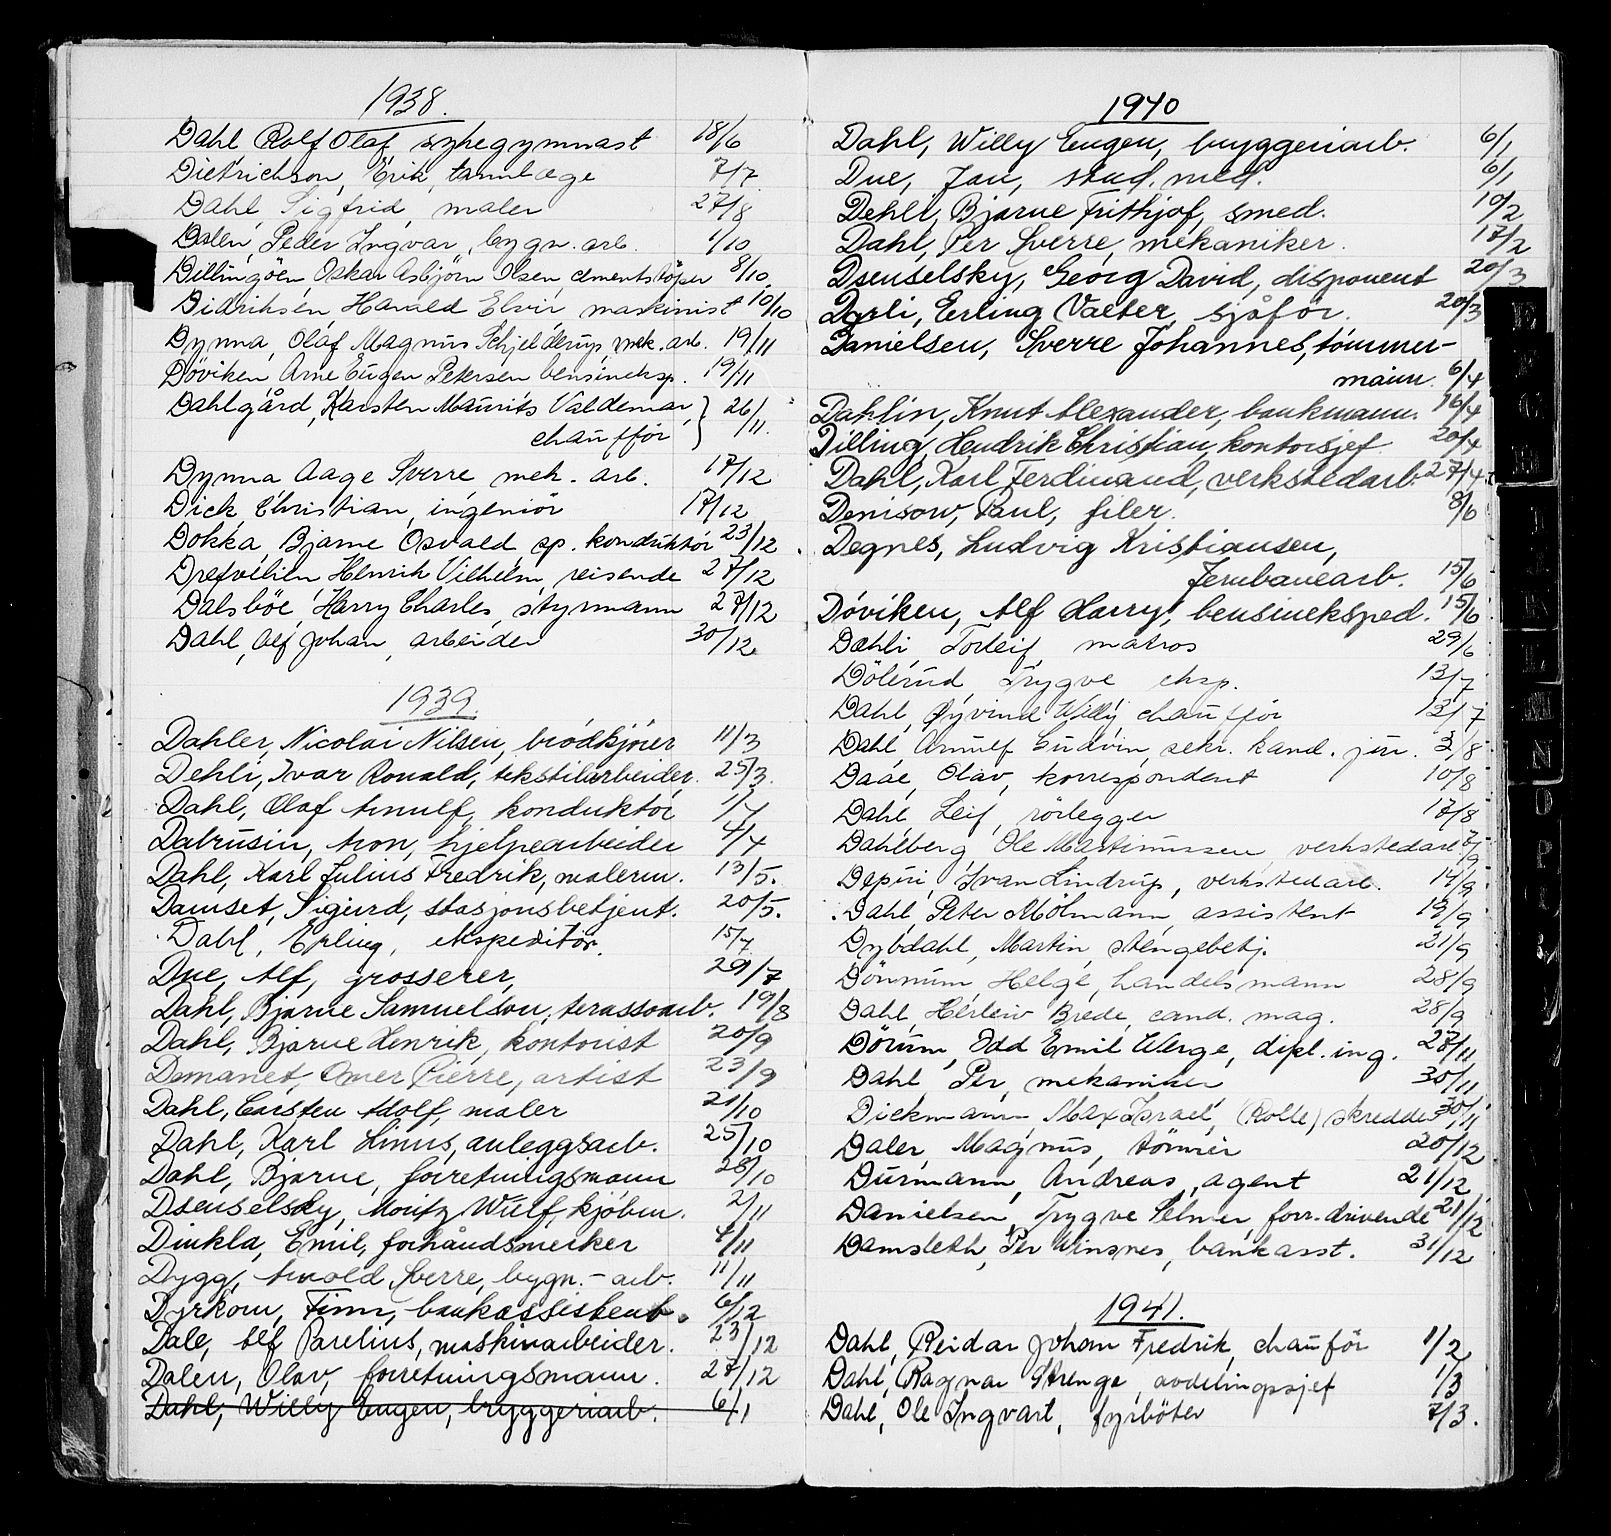 1938.
Dahl Rolf Olaf sykegymnast 18/6
Dietrichson, Erik, tannlæge 7/7
Dahl, Sigfrid, maler 27/8
Dalen, Peder Ingvar, bygn. arb. 1/10
Dillingöen Oskar Asbjörn Olsen, cementstöper 8/10
Didriksen Harald Elvir maskinist 10/10
Dynna, Olaf Magnus Schjelderup, mek. arb. 19/11
Döviken, Arne Eugen Petersen bensineksp. 19/11
Dahlgård, Karsten Maurits Valdemar, } 26/11
chaufför
Dynna Aage Sverre mek. arb. 17/12
Dick, Christian, ingeniör 17/12
Dokka, Bjarne Osvald sp. konduktör 23/12
Drefvelin Henrik Vilhelm, reisende 27/12
Dalsböe, Harry Charles, styrmann 27/12
Dahl, Alf Johan, arbeider 30/12
1939.
Dahler, Nicolai Nilsen, brödkjörer 11/3
Dehli, Ivar Ronald, tekstilarbeider. 25/3.
Dahl, Olaf Arnulf, konduktör 1/4
Dabrusin, Aron, hjelpearbeider 4/4
Dahl, Karl Julius Fredrik, malerm. 13/5.
Damset, Sigurd, stasjonsbetjent. 20/5.
Dahl, Erling, ekspeditör. 15/7
Due, Alf, grosserer, 29/7
Dahl, Bjarne Samuelson, terassoarb. 19/8
Dahl, Bjarne Henrik, kontorist 20/9
Demanet, Omer Pierre, artist 23/9
Dahl, Carsten Adolf, maler 21/10
Dahl, Karl Linus, anleggsarb. 25/10
Dahl, Bjarne, forretningsmann 28/10
Dsenselsky, Moritz Wulf, kjöbm. 2/11
Dinkla, Emil, forhåndsmerker 4/11
Dygg, Arnold Sverre, bygn.-arb. 11/11
Dyrkorn, Finn, bankassistent. 6/12
Dale, Alf Parelius, maskinarbeider. 23/12
Dalen, Olav, forretningsmann. 27/12
Dahl, Willy Eugen, bryggeriarb. 6/1
1940
Dahl, Willy Eugen, bryggeriarb. 6/1
Due, Jan, stud. med. 6/1
Dehli, Bjarne Frithjof, smed. 10/2
Dahl, Per Sverre, mekaniker. 17/2
Dsenselsky, Georg David, disponent 20/3
Dæhli, Erling Valter, sjåför. 20/3
Danielsen, Sverre Johannes, tömmer-
mann. 6/4
Dahlin, Knut Alexander, bankmann. 16/4
Dilling, Hendrik Christian, kontorsjef 20/4
Dahl, Karl Ferdinand, verkstedarb. 27/4
Denisow, Paul, filer. 8/6
Degnes, Ludvig Kristiansen,
Jernbanearb. 15/6
Döviken, Alf Harry, bensineksped. 15/6
Dæhli, Torleif, matros 29/6
Dölerud Trygve eksp. 13/7
Dahl, Øyvind Willy, chaufför 13/7
Dahl, Arnulf Eudvin, sekr. kand. jur. 3/8
Daae, Olav, korrespondent 10/8
Dahl, Leif, rörlegger 17/8
Dahlberg, Ole Martinussen, verkstedarb 7/9
Depui, Ivan Lindrup, verkstedarb. 14/9
Dahl, Peter Molmann, assistent 19/9
Dybdahl, Martin, stengebetj. 21/9
Dönnum Helge, handelsmann 28/9
Dahl, Herleiv Brede, cand. mag. 28/9
Dörum, Odd Emil Werge, dipl. ing. 27/11
Dahl, Per, mekaniker 30/11
Dickmann, Max Israel, (Rolle) skredder 30/11
Daler, Magnus, tömrer 20/12
Durmann, Andreas, agent 21/12
Danielsen, Trygve Selmer, forr. drivende 21/12
Damsleth, Per Winsnes, bankasst. 31/12
1941.
Dahl, Reidar Johan Fredrik, chauför 1/2
Dahl, Ragnar Strenge, avdelingssjef 1/3
Dahl, Ole Ingvart, fyrböter 7/3.
E
F
G
H
I
J
K
L
M
N
O
P